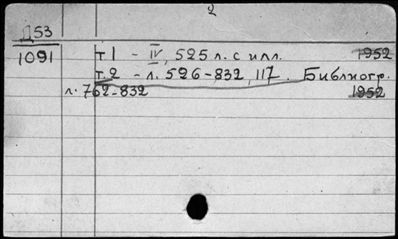 2
Д53
1091
т.1 - IV, 525 л. с илл. 1952
т.2 - л. 526-832, 117. Библиогр.
л. 762-832 1952